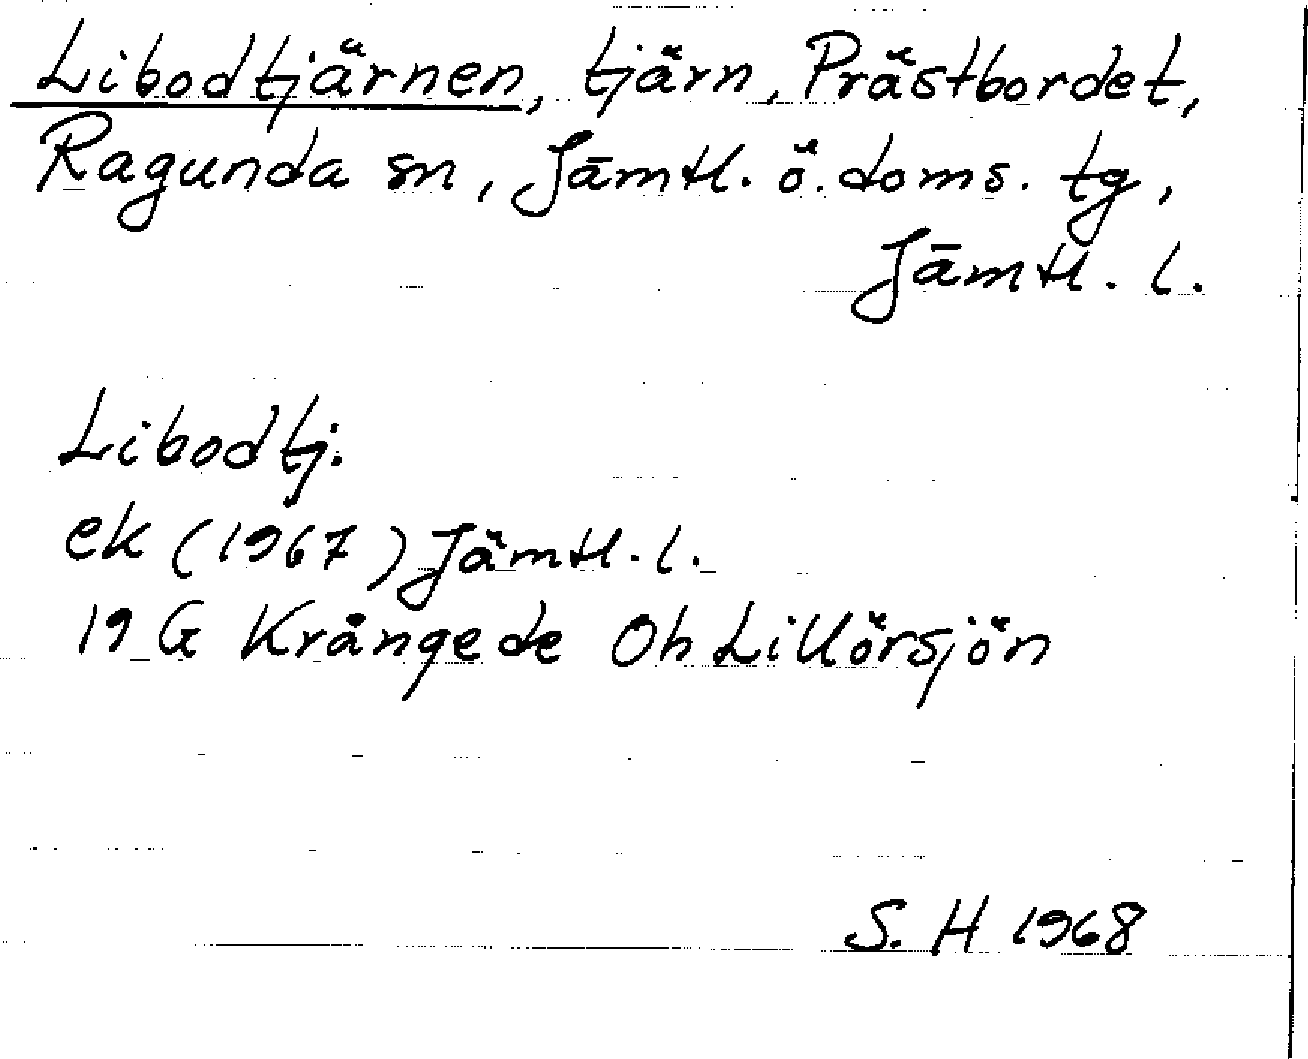 Libodtjärnen, tjärn, Prästbordet,
Ragunda sn, Jämtl. ö. doms. tg,
Jämtl. l.
Libodtj.
ek (1967) Jämtl. l.
19 G Krångede Oh Lillörsjön
S. H 1968